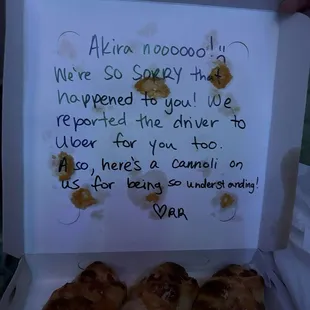 Akira noooooo! :(
We're SO SORRY that
happened to you! We
reported the driver to
Uber for you too.
Also, here's a cannoli on
us for being so understanding!
♡RR